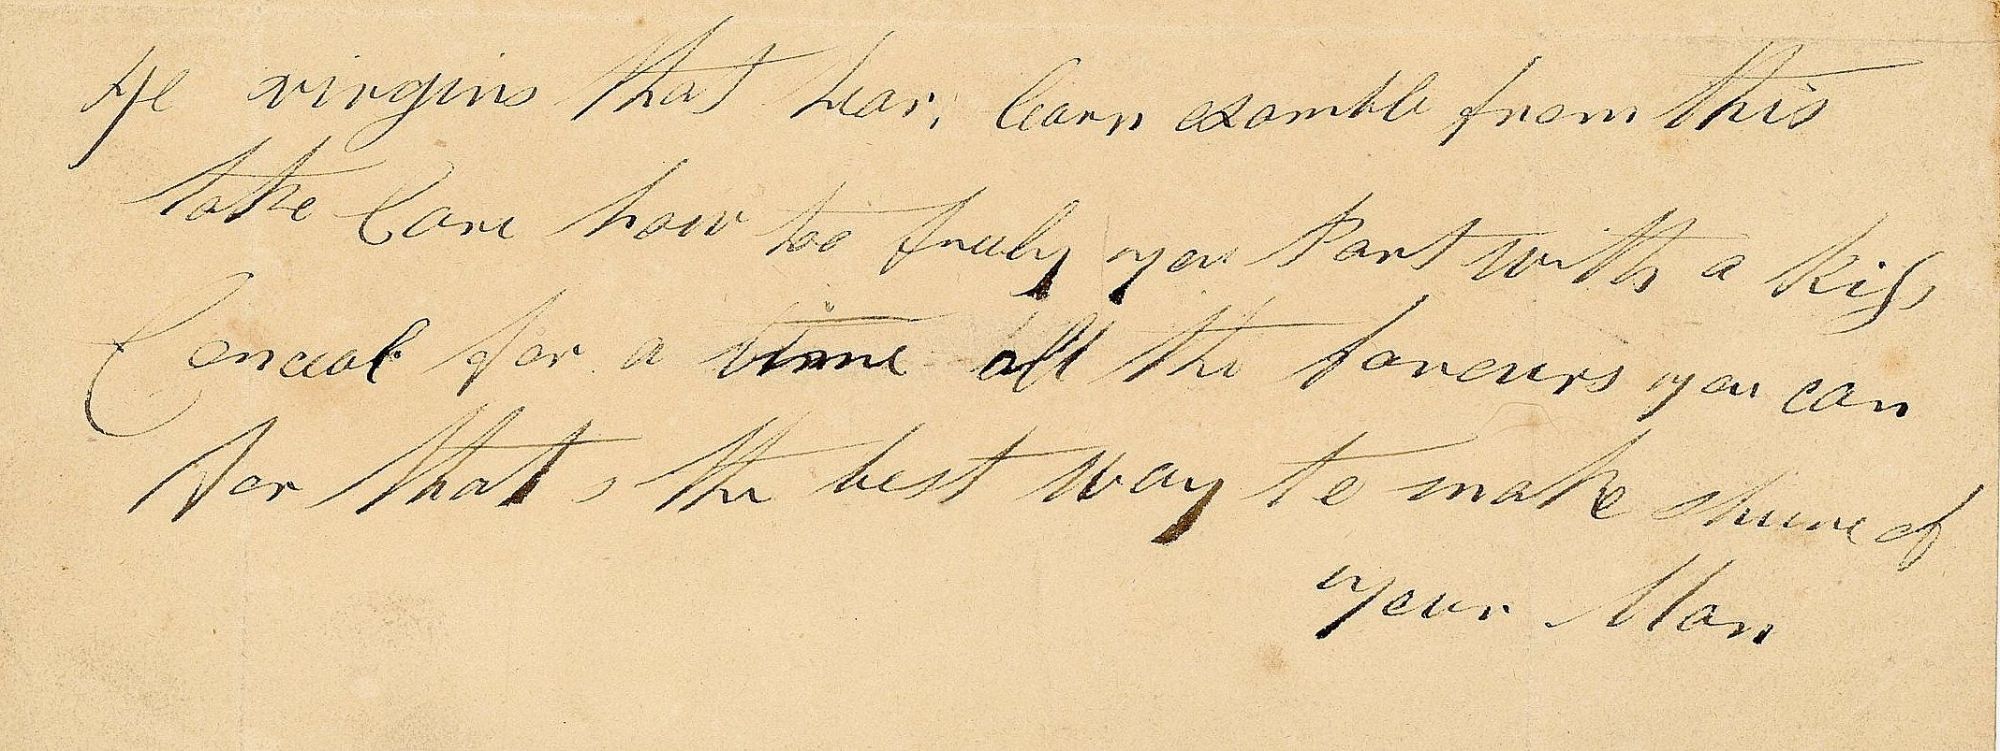 Ye virgins that hear, learn examble from this
take Care how too fruly you Part with a Kiss
Conceal for a time all the favours you can
for that,s the best way to make shure of
your Man